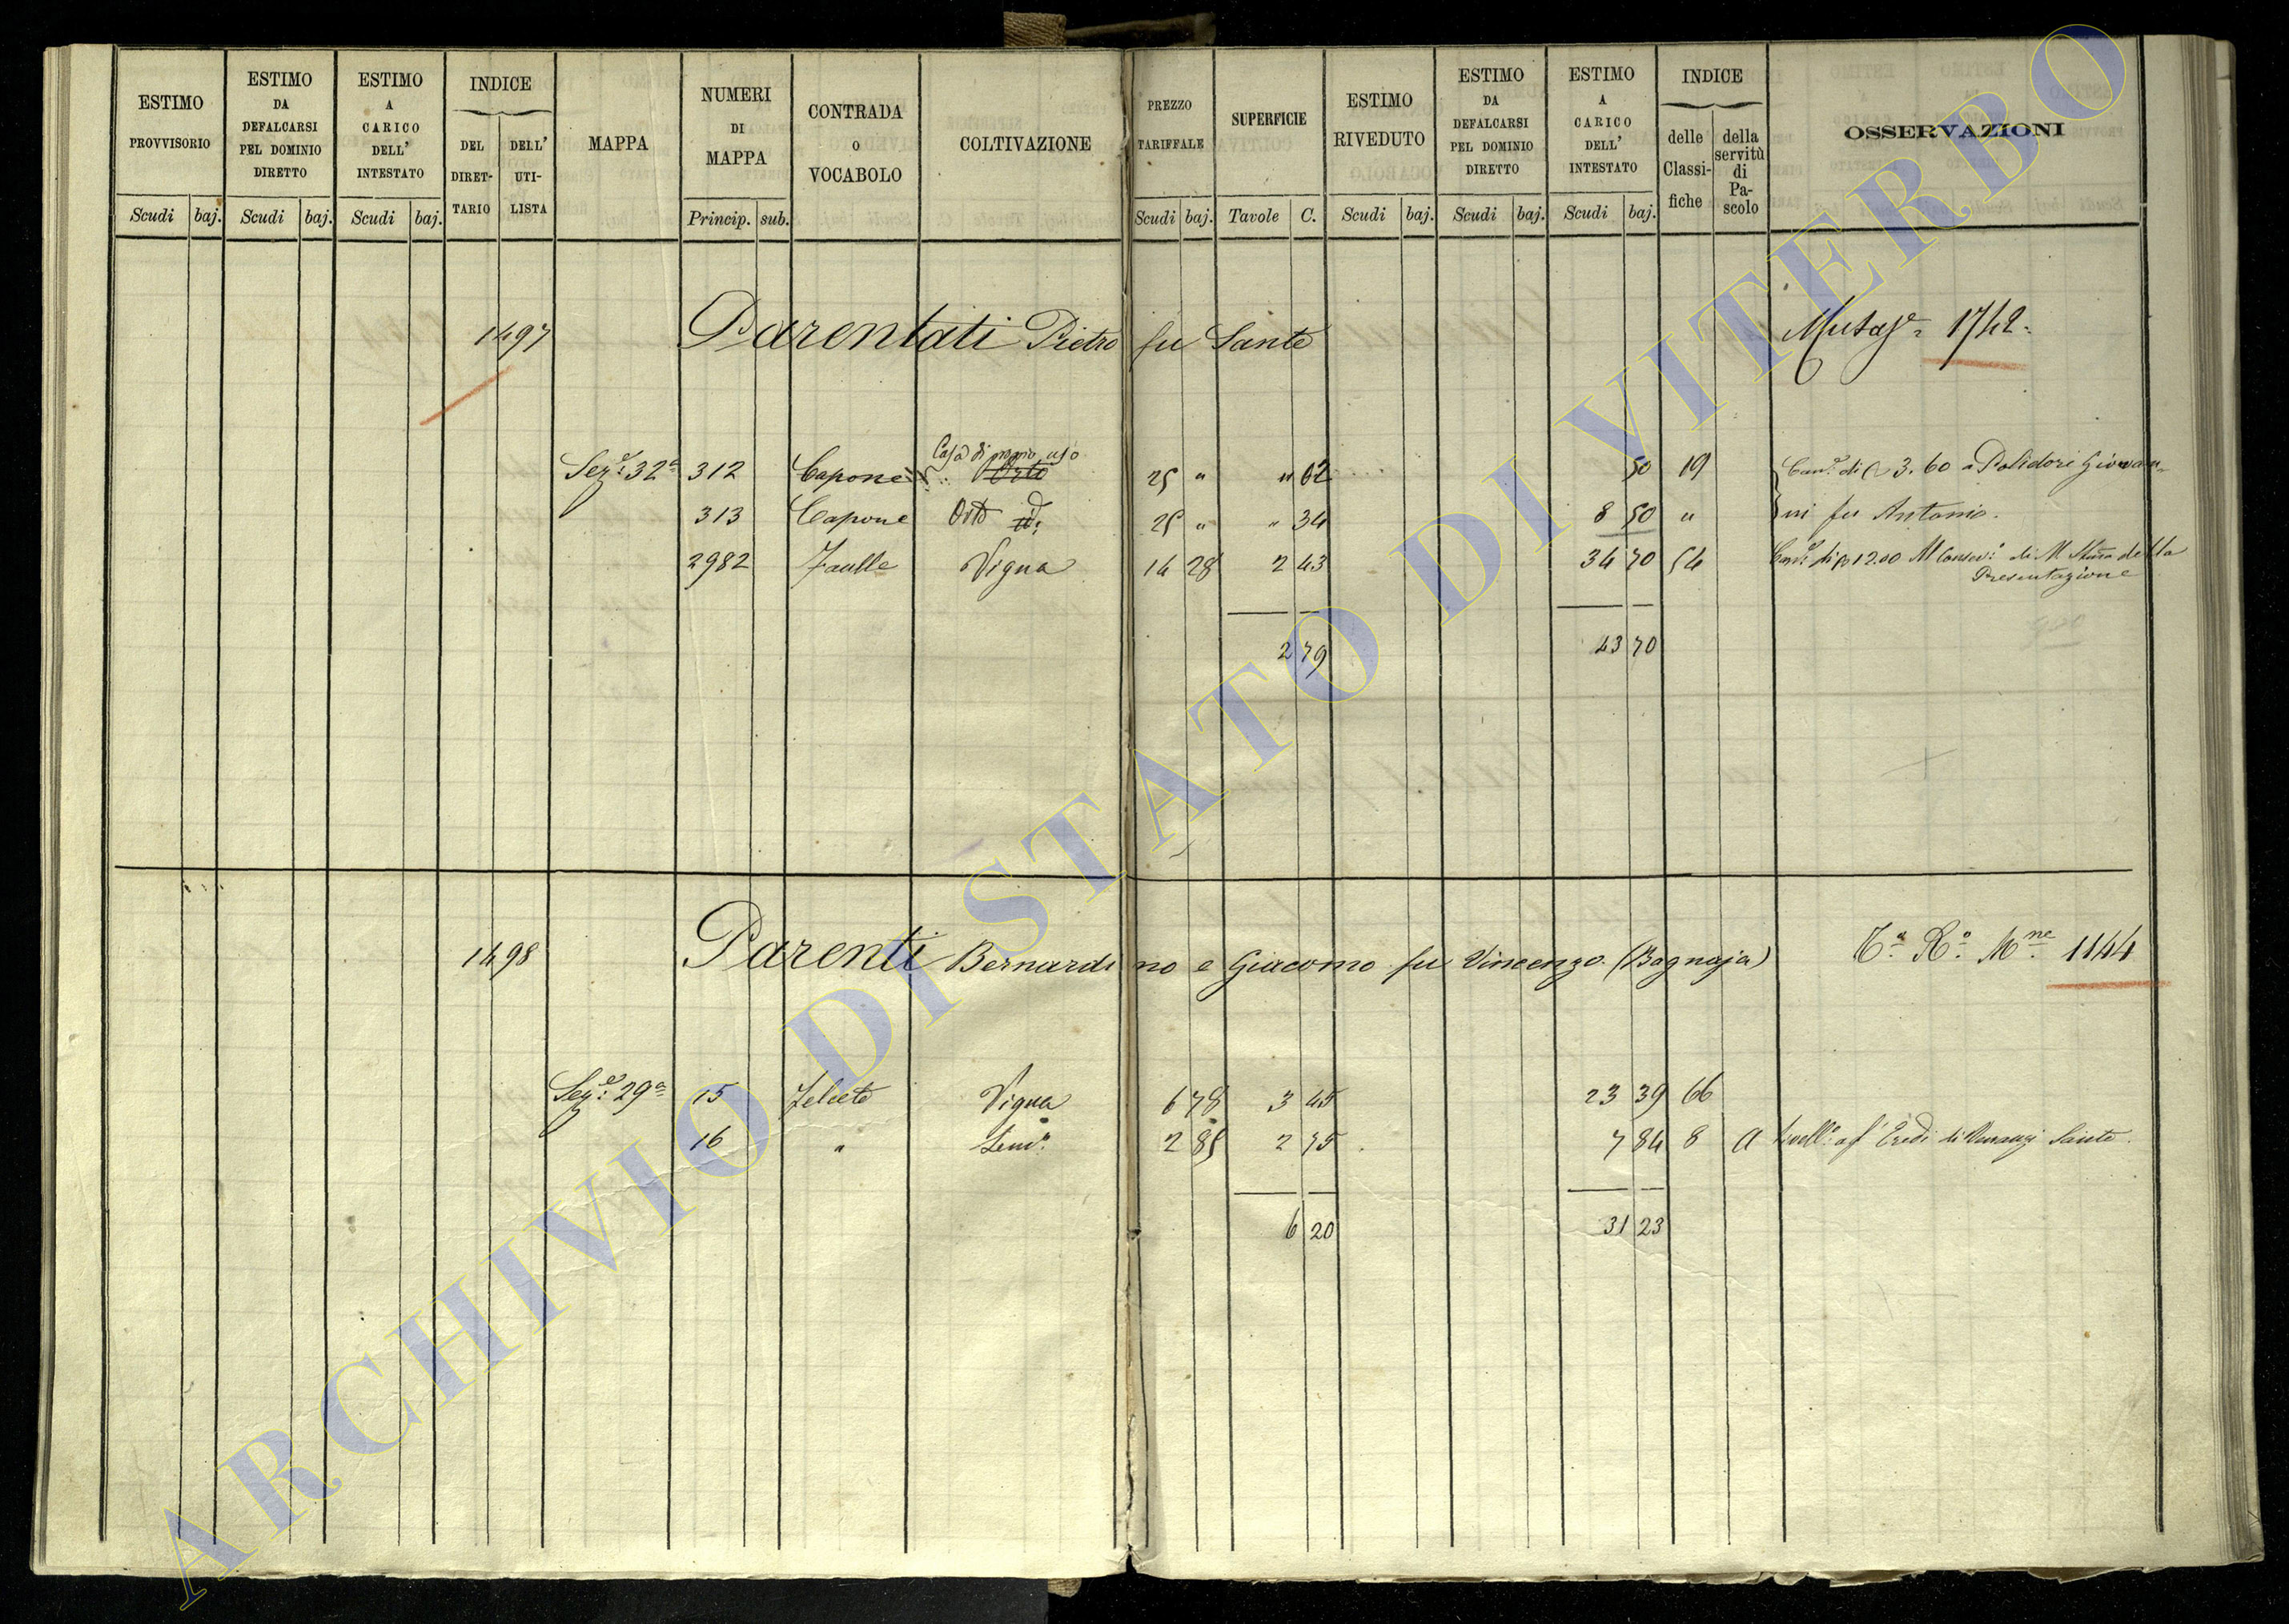 ESTIMO PROVVISORIO Scudi baj.
ESTIMO DA DEFALCARSI PEL DOMINIO DIRETTO Scudi baj.
ESTIMO A CARICO DELL' INTESTATO Scudi baj.
INDICE DEL DIRET-TARIO DELL' UTI-LISTA
MAPPA
NUMERI DI MAPPA Princip. sub.
CONTRADA O VOCABOLO
COLTIVAZIONE
PREZZO TARIFFALE Scudi baj.
SUPERFICIE Tavole C.
ESTIMO RIVEDUTO Scudi baj.
ESTIMO DA DEFALCARSI PEL DOMINIO DIRETTO Scudi baj.
ESTIMO A CARICO DELL' INTESTATO Scudi baj.
INDICE delle Classi-fiche della servitù di Pa-scolo
OSSERVAZIONI
1497 Parentati Pietro fu Sante 1742
Casa di proprio uso
Sez.e 32a 312 Capone Orto 25 " " 02 50 19 3.60 a Polidori Giovan-
313 Capone Orto id. 25 " " 34 8 50 " ni fu Antonio.
2982 Faulle Vigna 14 28 2 43 34 70 54 12.00 di M della
Presentazione
2 79 43 70
1498 Parenti Bernardino e Giacomo fu Vincenzo (Bagnaja) Ta Ro Mne 1144
Sez.e 29a 15 Felceto Vigna 6 78 3 45 23 39 66
16 " Sem.o 2 85 2 75 7 84 8 A Eredi di Sante.
6 20 31 23
ARCHIVIO DI STATO DI VITERBO